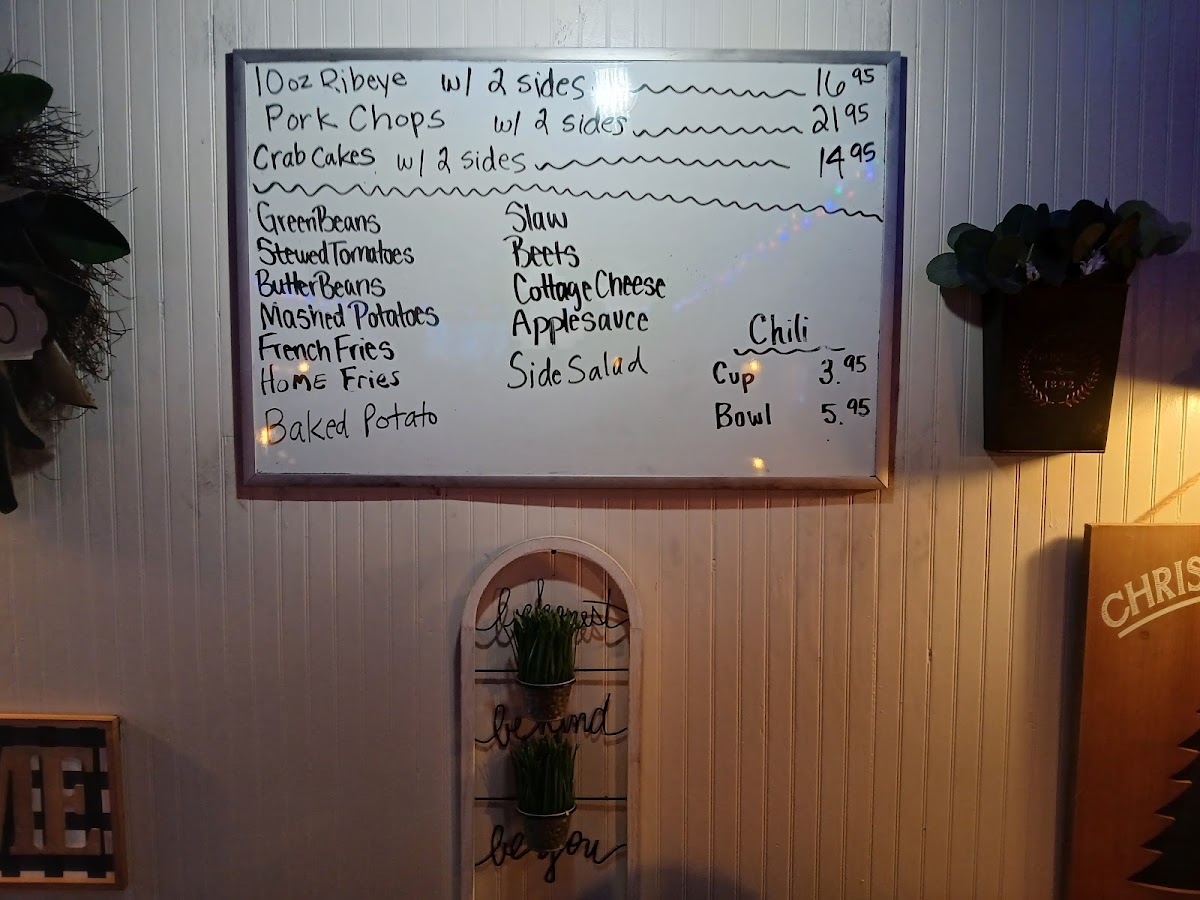 10oz Ribeye w/ 2 sides 16 95
Pork Chops w/ 2 sides 21 95
Crab Cakes w/ 2 sides 14 95
Green Beans
Stewed Tomatoes
Butter Beans
Mashed Potatoes
French Fries
HOME Fries
Baked Potato
Slaw
Beets
Cottage Cheese
Applesauce
Side Salad
Chili
Cup 3.95
Bowl 5.95
1892
CHRIS
be honest
be kind
be you
ME